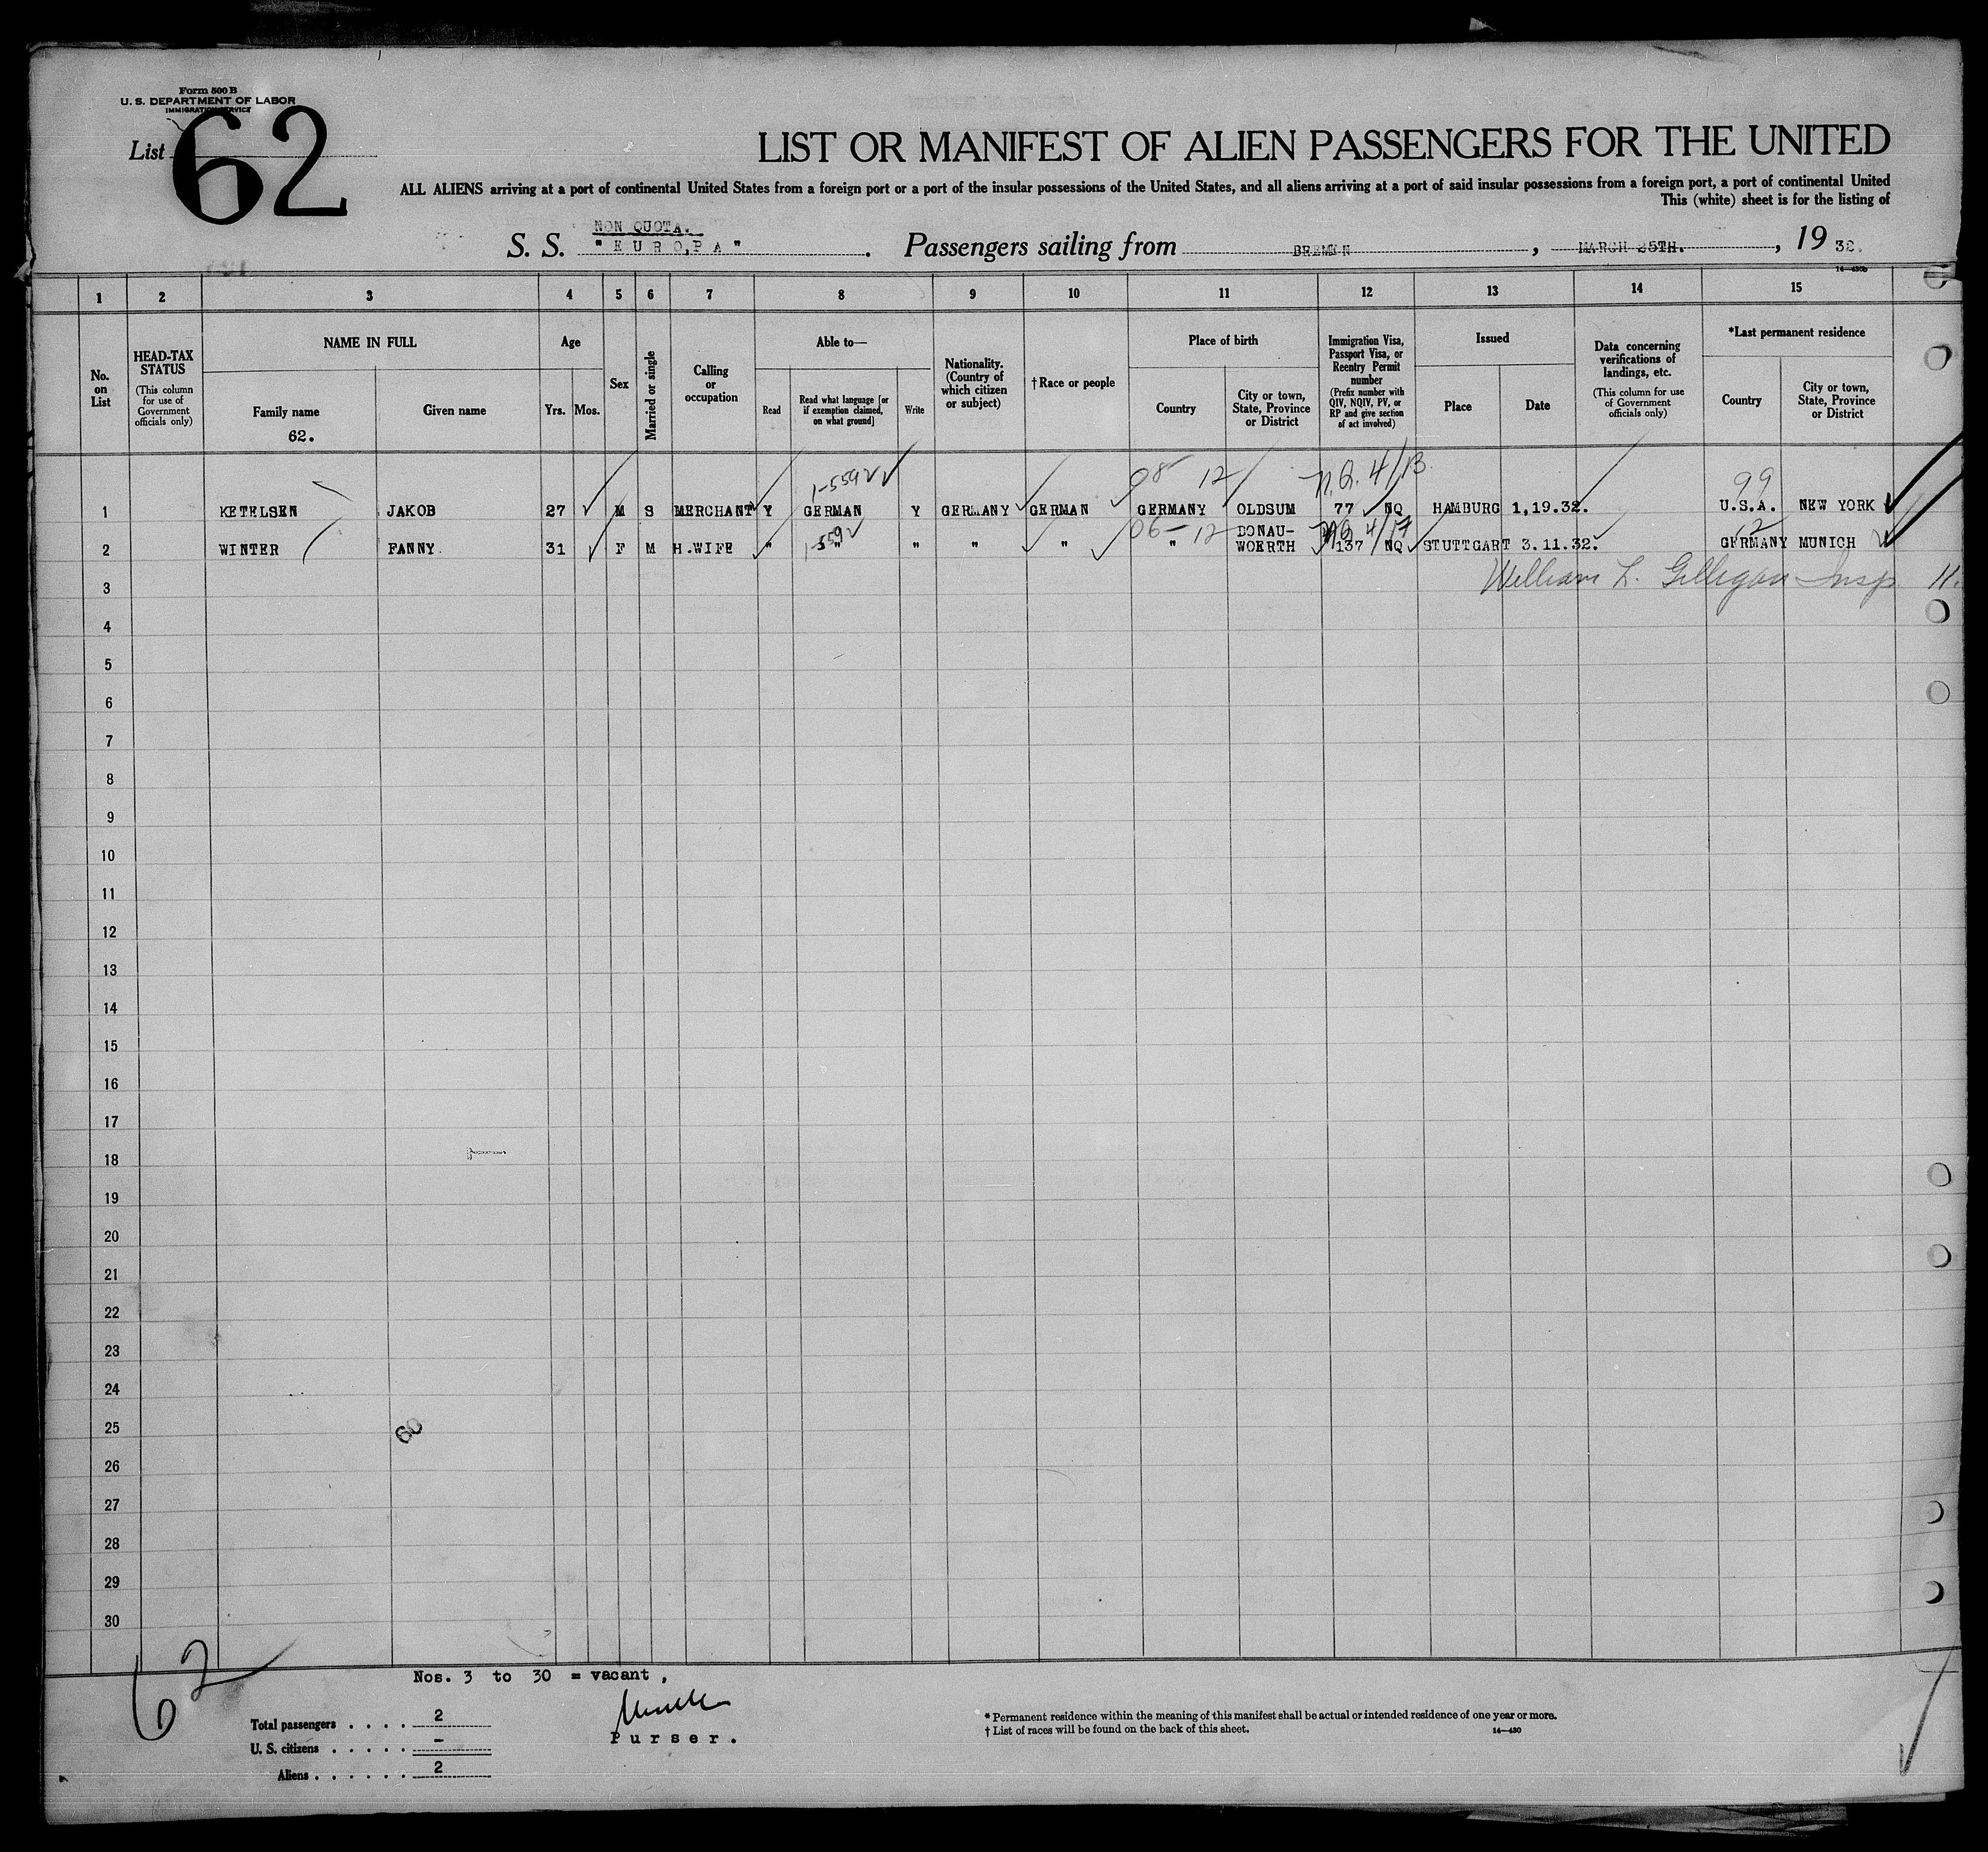 Form 500 B
U. S. DEPARTMENT OF LABOR
IMMIGRATION SERVICE
List 62
LIST OR MANIFEST OF ALIEN PASSENGERS FOR THE UNITED
ALL ALIENS arriving at a port of continental United States from a foreign port or a port of the insular possessions of the United States, and all aliens arriving at a port of said insular possessions from a foreign port, a port of continental United
This (white) sheet is for the listing of
NON QUOTA.
S. S. "EUROPA". Passengers sailing from BREMEN, MARCH 25TH., 1932.
14—430b
1 2 3 4 5 6 7 8 9 10 11 12 13 14 15
No. on List
HEAD-TAX STATUS
(This column for use of Government officials only)
NAME IN FULL
Family name
62.
Given name
Age
Yrs. Mos.
Sex
Married or single
Calling or occupation
Able to—
Read
Read what language [or if exemption claimed, on what ground]
Write
Nationality. (Country of which citizen or subject)
†Race or people
Place of birth
Country
City or town, State, Province or District
Immigration Visa, Passport Visa, or Reentry Permit number
(Prefix number with QIV, NQIV, PV, or RP and give section of act involved)
Issued
Place
Date
Data concerning verifications of landings, etc.
(This column for use of Government officials only)
*Last permanent residence
Country
City or town, State, Province or District
1-5592 08 12 N.Q. 4/13 99
1 KETELSEN JAKOB 27 M S MERCHANT Y GERMAN Y GERMANY GERMAN GERMANY OLDSUM 77 NQ HAMBURG 1,19.32. U.S.A. NEW YORK
1-5592 06-12 12
2 WINTER FANNY 31 F M H.WIFE " " " " " " DONAU-
WOERTH 137 NQ STUTTGART 3.11.32. GERMANY MUNICH
William L. Gilligan Insp
3
4
5
6
7
8
9
10
11
12
13
14
15
16
17
18
19
20
21
22
23
24
25
60
26
27
28
29
30
62
Nos. 3 to 30 = vacant,
Total passengers . . . . 2
U. S. citizens . . . . . -
Aliens . . . . . . 2
Purser.
* Permanent residence within the meaning of this manifest shall be actual or intended residence of one year or more.
† List of races will be found on the back of this sheet. 14—430